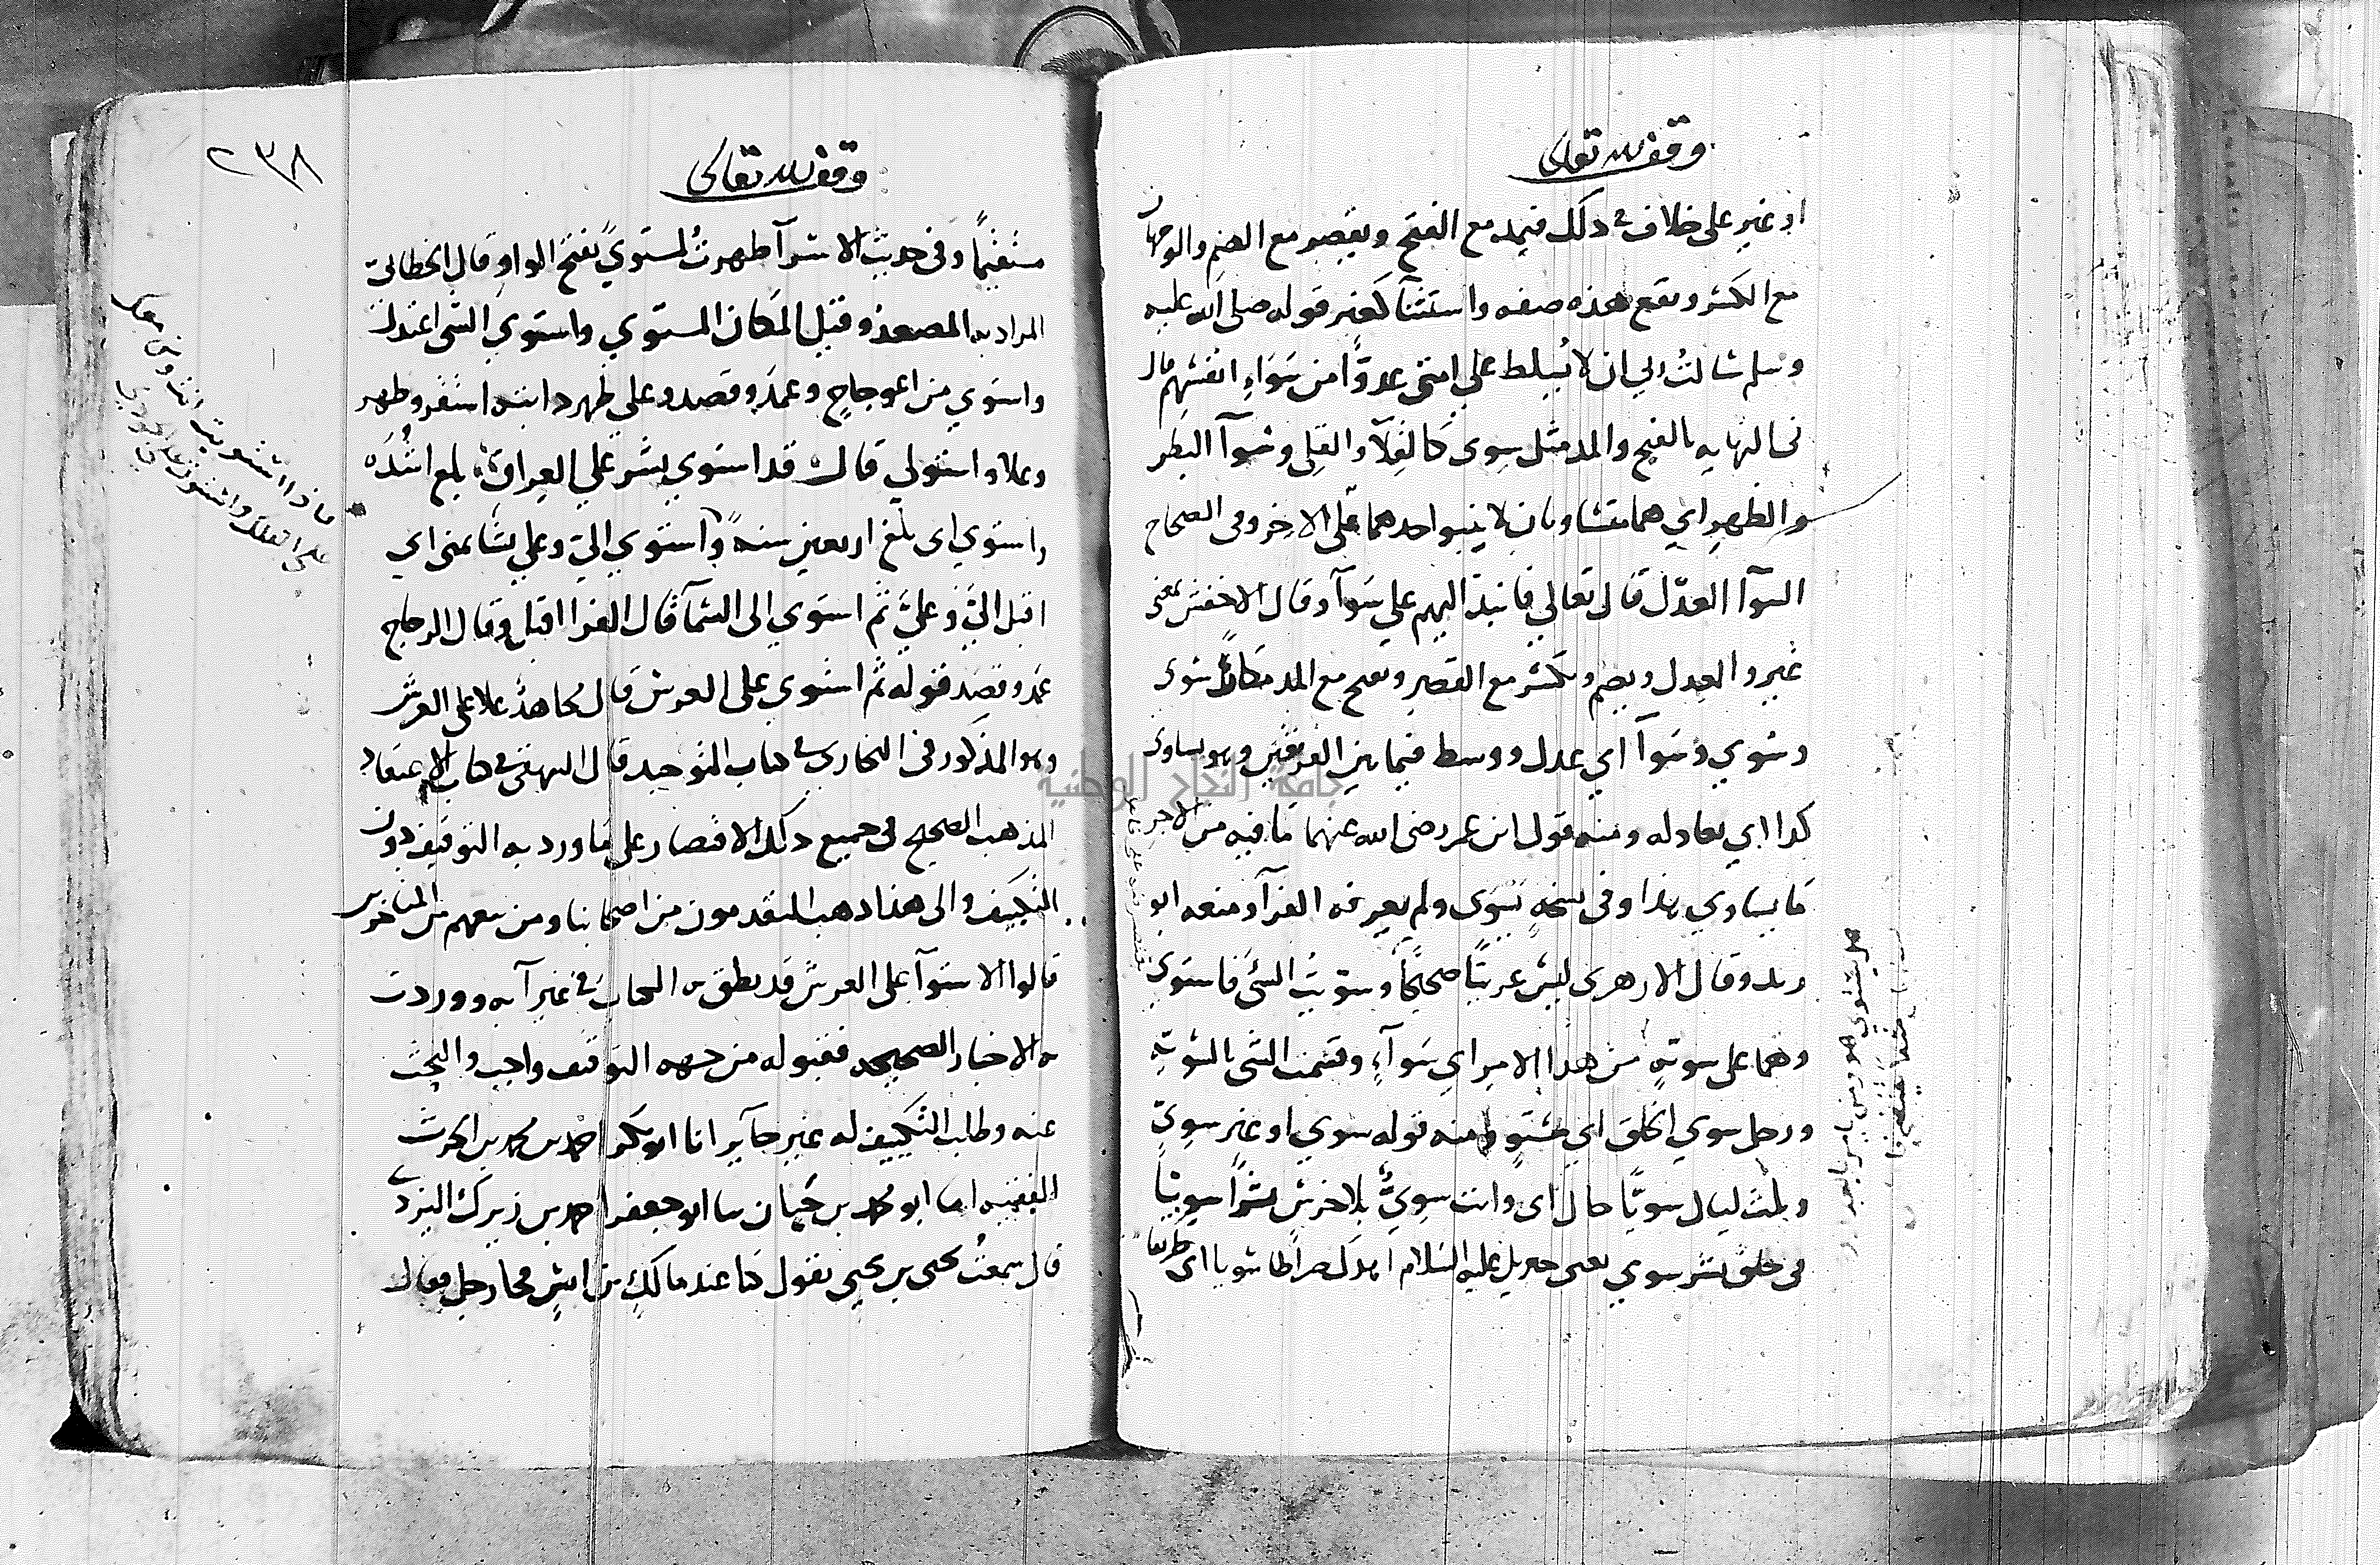 وقف لله تعالى
او غير على خلاف في ذلك فيمد مع الفتح ويقصر مع الضم والوجهان
مع الكسر وتقع هذه صفه واستثنآ كغير قوله صلى الله عليه
وسلم سالت ربي ان لا يسلط على امتي عدوًّا من سَوَاءِ انفسهم قال
في النهايه بالفتح والمد مثل سِوى كالقلآ والقِلى وسَوآ البطن
والظهر اي هما متساويان لا ينبو احدهما على الاخر وفي الصحاح
السوآ العدل قال تعالى فانبذ اليهم على سوآ وقال الاخفش بمعنى
غير والعدل ويضم ويكسر مع القصر ويفتح مع المد مكان سُوى
وسِوى وسَوآ اي عدل ووسط فيما بين الفريقين وهو يساوي
كذا اي يعادله ومنه قول ابن عمر رضي الله عنهما ما فيه من الاجر
ما يساوي هذا وفي نسخةٍ يَسْوَى ولم يعرفه الفرآ ومنعه ابو
زيد وقال الازهري ليس عربيًّا صحيحًا وسوّيتُ الشئ فاستوى
وهما على سويّةٍ من هذا الامر اي سَوآءٍ وقسمت الشئ بالسّويّة
ورجل سوي الخلق اي مستوٍ ومنه قوله سوي او غير سويّ
وثلث ليال سويًّا حال اي وانت سويٌّ بلا خرس بشرًا سويًّا
في خلق بشر سوي يعني جبريل عليه السلام اهدك صراطا سويا اي طريقا
وقف لله تعالى
٢٣٨
مستقيمًا وفي حديث الاسرآ ظهرتُ لمستوىً بفتح الواو وقال الخطابي
المراد به المصعد وقيل المكان المستوي واستوي الشئ اعتدل
واستوي من اعوجاجٍ وعمد وقصد وعلى ظهر دابته استقر وظهر
وعلا واستولي قال قد استوي بشر على العراق بلغ اشُدّه
واستوي اي بلغ اربعين سنةً واستوي اليّ وعليّ بمعنى اي
اقبل اليّ وعليّ ثم استوي الى السمآ قال الفرا اقبل وقال الزجاج
عمد وقصد قوله ثم استوي على العرش قال مجاهدٌ علا على العرش
وهو المذكور في البخاري في كتاب التوحيد قال البيهقي في كتاب الاعتقاد
المذهب الصحيح في جميع ذلك الاقتصار على ما ورد به التوقيف دون
التكييف والى هذا ذهب المتقدمون من اصحابنا ومن تبعهم من المتاخرين
قالوا الاستوآ على العرش قد نطق به الكتاب في غير آيه ووردت
به الاخبار الصحيحه فقبوله من جهه التوقيف واجب والبحث
عنه وطلب التكييف له غير جآيز انا ابو بكر احمد بن محمد بن الحرث
الفقيه انا ابو محمد بن حيان نا ابو جعفر احمد بن زيرك اليزدي
قال سمعتُ يحيى بن يحيى يقول كنا عند مالكِ بن انسٍ فجا رجل فقال
فاذا استويت انت ومن معك
على الفلك واستوت على الجودي
جامعة النجاح الوطنية